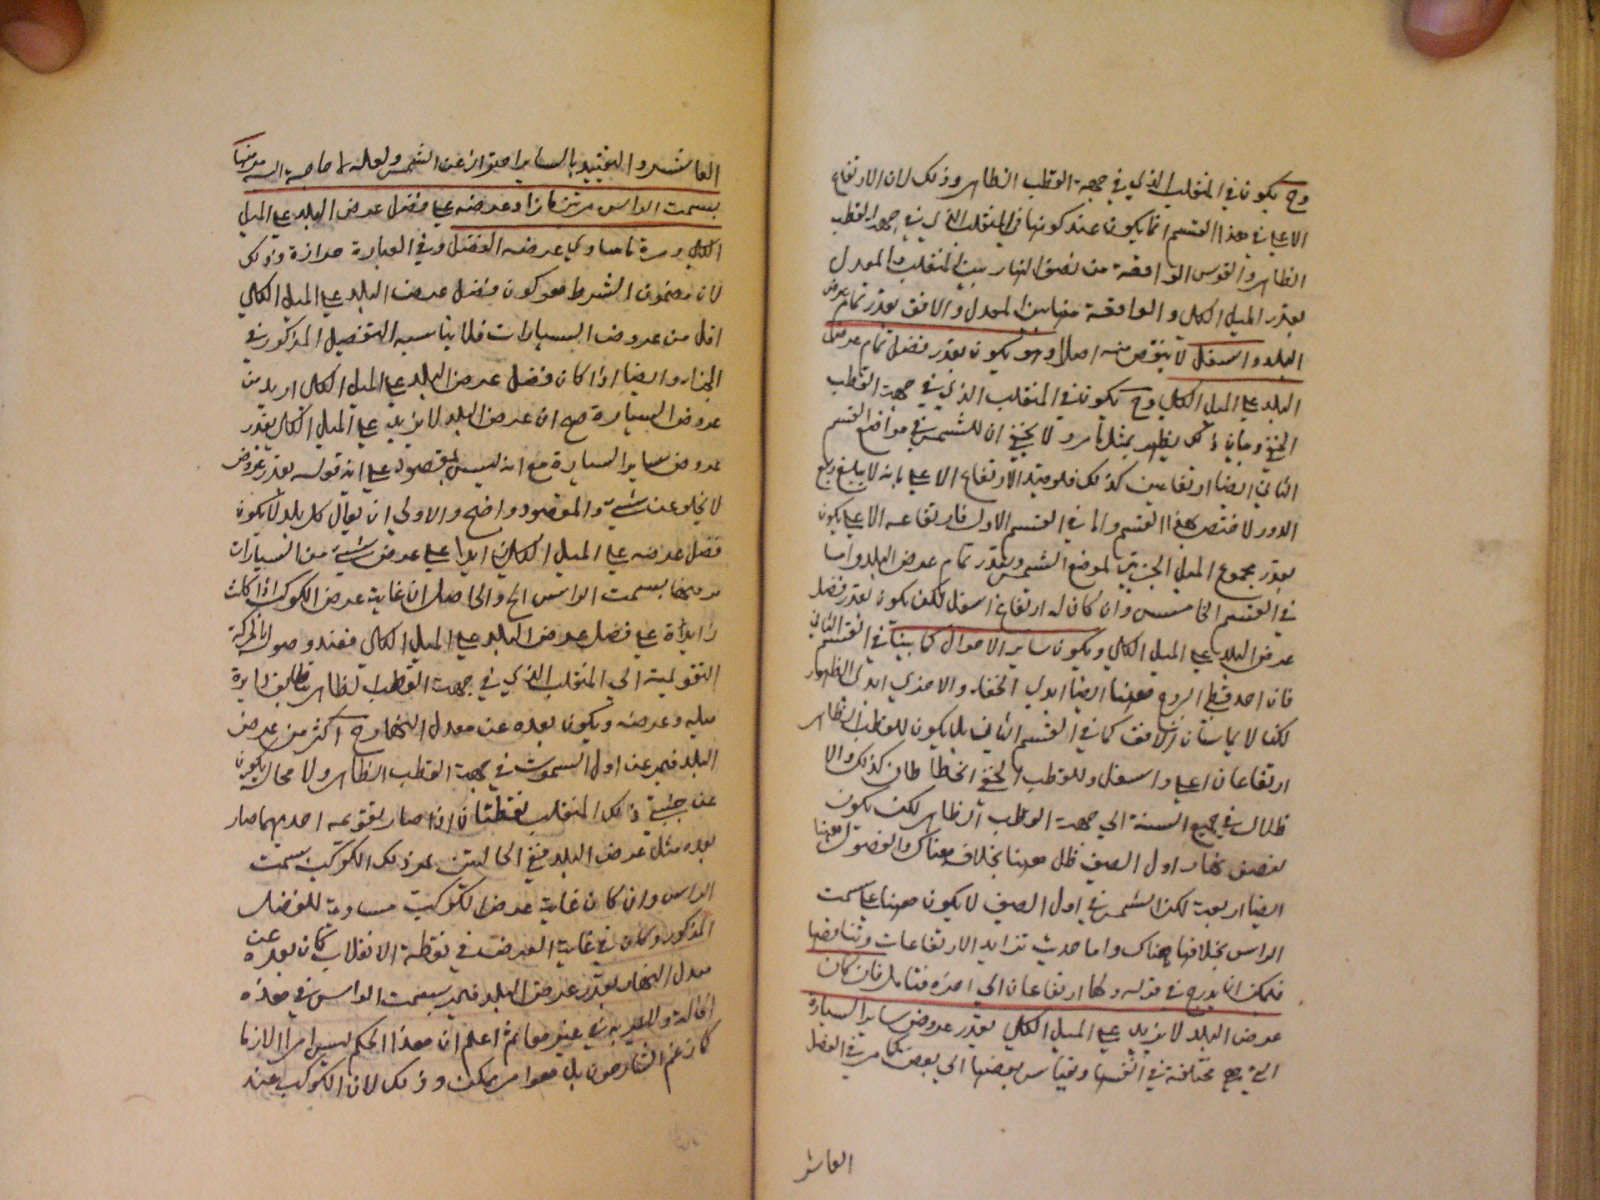 وح يكون في المنقلب الذي في جهة القطب الظاهر وذلك لان الارتفاع
الاعلى في هذا القسم انما يكون عند كونها في المنقلب الذي في جهة القطب
الظاهر والقوس الواقعة من نصف النهار بين المنقلب والمعدل
بقدر الميل الكلي والواقعة منه بين المعدل والافق بقدر تمام عرض
البلد واسفل لا ينقص منه اصلا وهو يكون بقدر فضل تمام عرض
البلد على الميل الكلي وح يكون في المنقلب الذي في جهة القطب
الخفي وبيان ذلك يظهر بمثل ما مر ولا يخفى ان للشمس في مواضع القسم
الثاني ايضا ارتفاعين كذلك فلو قيد الارتفاع الاعلى بانه لا يبلغ ربع
الدور لاختص بهذا القسم واما في القسم الاول فارتفاعه الاعلى يكون
بقدر مجموع الميل الجزئي لموضع الشمس وبقدر تمام عرض البلد واما
في القسم الخامس وان كان له ارتفاع اسفل لكن يكون بقدر فضل
عرض البلد على الميل الكلي ويكون ساير الاحوال كما بينا في القسم الثاني
فان احد قطبي البروج ههنا ايضا ابدي الخفاء والاخر ابدي الظهور
لكنها لا يماسان الافق كما في القسم الثاني بل يكون للقطب الظاهر
ارتفاعان اعلى واسفل وللقطب الخفي انحطاطان كذلك والا
ظلال في جميع السنة الى جهة القطب الظاهر لكن يكون
لنصف نهار اول الصيف ظل ههنا بخلاف هناك والفصول ههنا
ايضا اربعة لكن الشمس في اول الصيف لا يكون ههنا على سمت
الراس بخلافها هناك واما حديث تزايد الارتفاعات وتناقصها
فيمكن ان يدرج في قوله ولها ارتفاعان الى اخره فتامل فان كان
عرض البلد لا يزيد على الميل الكلي بقدر عروض ساير السيارة
التي هي مختلفة في انفسها وبقياس بعضها الى بعض كما مر في الفصل
العاشر
العاشر والتقييد بالساير احتراز عن الشمس ولعله لا حاجة اليه مر منها
بسمت الراس مرتين ما زاد عرضه على فضل عرض البلد على الميل
الكلي ومرة ما ساوى عرضه الفضل وفي العبارة حزازة وذلك
لان مضمون الشرط هو كون فضل عرض البلد على الميل الكلي
اقل من عروض السيارات فلا يناسبه التفصيل المذكور في
الجزاء وايضا اذا كان فضل عرض البلد على الميل الكلي ازيد من
عروض السيارة صح ان عرض البلد لا يزيد على الميل الكلي بقدر
عروض ساير السيارة مع انه ليس بمقصود على ان قوله بقدر عروض
لا يخلو عن شيء والمقصود واضح والاولى ان يقال كل بلد لا يكون
فضل عرضه على الميل الكلي زايدا على عرض شيء من السيارات
مر منها بسمت الراس الخ والحاصل ان غاية عرض الكوكب اذا كانت
زايدة على فضل عرض البلد على الميل الكلي فعند وصوله بالحركة
التقويمية الى المنقلب الذي في جهة القطب الظاهر يتطابق دايرة
ميله وعرضه ويكون بعده عن معدل النهار ح اكثر من عرض
البلد فيمر عن اول السموت في جهة القطب الظاهر ولا محالة يكون
عن جنبتي ذلك المنقلب نقطتان اذا صار بتقويمه احديهما صار
بعده مثل عرض البلد ففي الحالتين يمر ذلك الكوكب بسمت
الراس وان كان غاية عرض الكوكب مساوية للفضل
المذكور وكان في غاية العرض في نقطة الانقلاب كان بعده عن
معدل النهار بقدر عرض البلد فيمر بسمت الراس في هذه
الحالة ولا يمر به في غيرها ثم اعلم ان هذا الحكم ليس امرا لازما
كما زعم الشارحون بل هو امر ممكن وذلك لان الكوكب عند